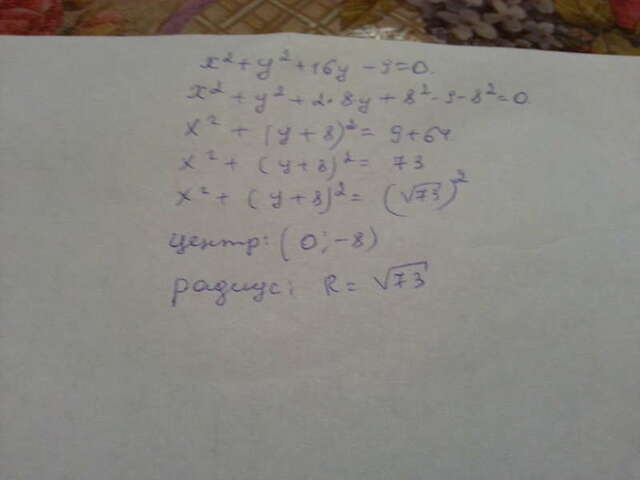 x²+y²+16y-9=0.
x²+y²+2·8y+8²-9-8²=0
x²+(y+8)²=9+64
x²+(y+8)²=73
x²+(y+8)²=(√73)²
центр: (0;-8)
радиус: R=√73